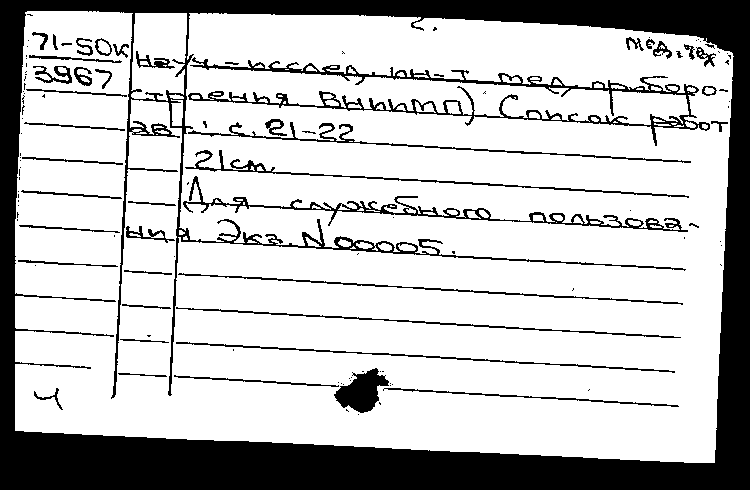 2.
мед. тех.
71-50к
3967
науч.-исслед. ин-т мед. приборо-
строения ВНИИМП). Список работ
авт.: с. 21-22
21см.
Для служебного пользова-
ния. Экз. N00005.
4